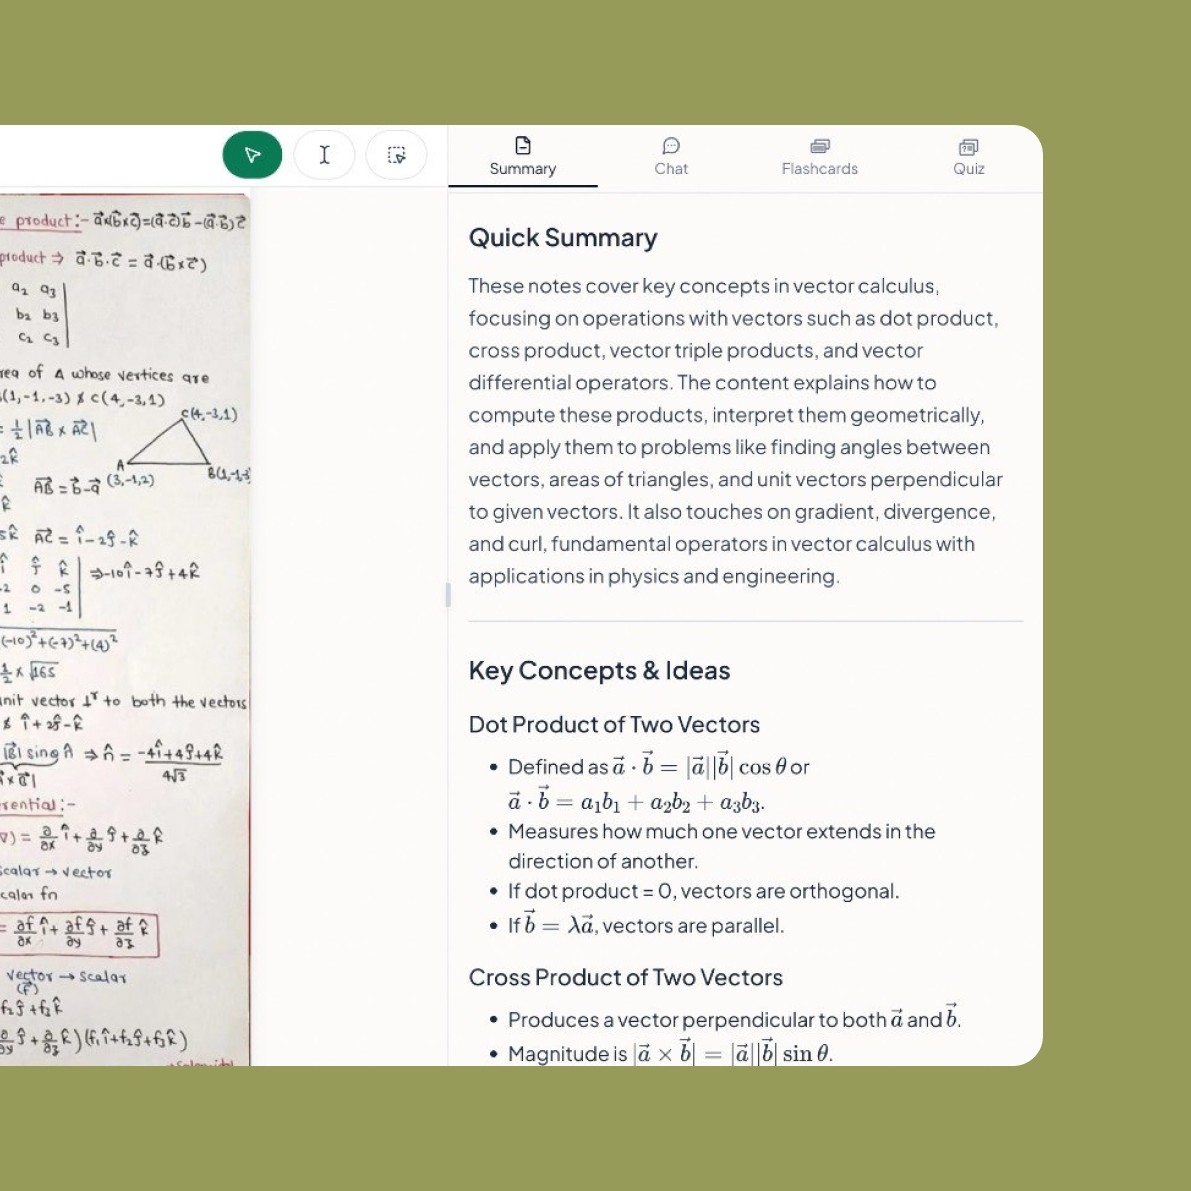 e product:- a⃗×(b⃗×c⃗)=(a⃗·c⃗)b⃗-(a⃗·b⃗)c⃗
product ⇒ a⃗·b⃗·c⃗ = a⃗·(b⃗×c⃗)
a₂ a₃
b₂ b₃
c₂ c₃
rea of Δ whose vertices are
(1,-1,-3) & C(4,-3,1)
= 1/2 |AB⃗ × AC⃗|
C(4,-3,1)
A
(3,-1,2)
B(1,-1,-3
2k̂
AB⃗ = b⃗-a⃗
k̂
5k̂ AC⃗ = î-2ĵ-k̂
î ĵ k̂
-2 0 -5
1 -2 -1
⇒-10î-7ĵ+4k̂
(-10)²+(-7)²+(4)²
1/2 × √165
unit vector ⊥ʳ to both the vectors
& î+2ĵ-k̂
|b⃗| sinθ n̂ ⇒ n̂ = -4î+4ĵ+4k̂ / 4√3
rential:-
∇) = ∂/∂x î + ∂/∂y ĵ + ∂/∂z k̂
scalar → vector
calar fn
= ∂f/∂x î + ∂f/∂y ĵ + ∂f/∂z k̂
vector → scalar
(f⃗)
f₂ĵ+f₃k̂
∂/∂y ĵ + ∂/∂z k̂)(f₁î+f₂ĵ+f₃k̂)
Summary
Chat
Flashcards
Quiz
Quick Summary
These notes cover key concepts in vector calculus,
focusing on operations with vectors such as dot product,
cross product, vector triple products, and vector
differential operators. The content explains how to
compute these products, interpret them geometrically,
and apply them to problems like finding angles between
vectors, areas of triangles, and unit vectors perpendicular
to given vectors. It also touches on gradient, divergence,
and curl, fundamental operators in vector calculus with
applications in physics and engineering.
Key Concepts & Ideas
Dot Product of Two Vectors
• Defined as a⃗ · b⃗ = |a⃗||b⃗| cos θ or
a⃗ · b⃗ = a₁b₁ + a₂b₂ + a₃b₃.
• Measures how much one vector extends in the
direction of another.
• If dot product = 0, vectors are orthogonal.
• If b⃗ = λa⃗, vectors are parallel.
Cross Product of Two Vectors
• Produces a vector perpendicular to both a⃗ and b⃗.
• Magnitude is |a⃗ × b⃗| = |a⃗||b⃗| sin θ.